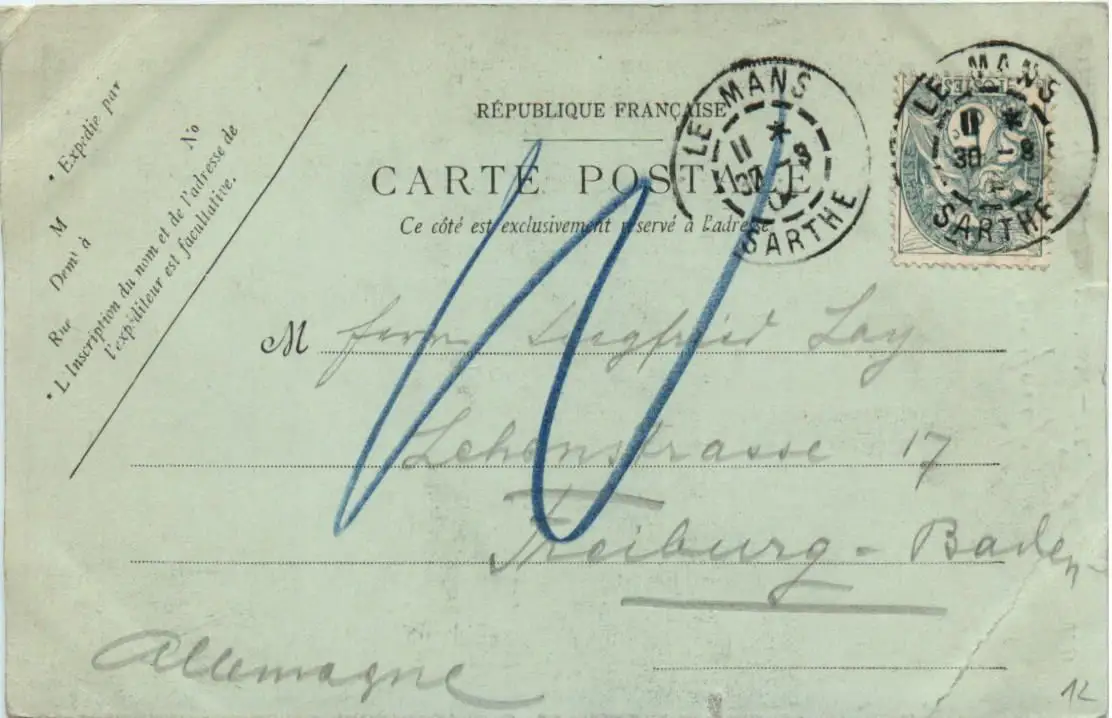 RÉPUBLIQUE FRANÇAISE
CARTE POSTALE
Ce côté est exclusivement réservé à l'adresse.
• Expédié par
M
Demt à
Rue No
• L'Inscription du nom et de l'adresse de
l'expéditeur est facultative.
LE MANS
11 *
30 - 8
SARTHE
POSTES
LE MANS
11 *
30 - 8
SARTHE
M Herrn Siegfried Lay
Lehenstrasse 17
Freiburg - Baden -
Allemagne
12